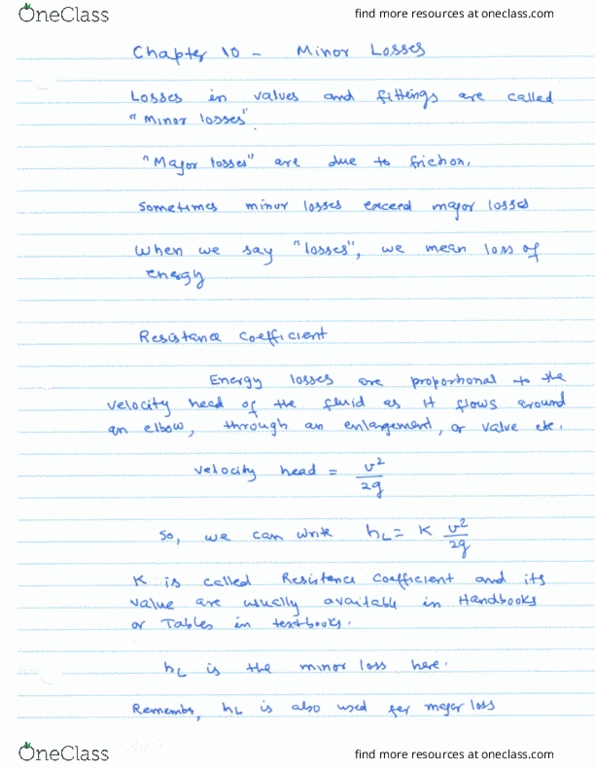 OneClass find more resources at oneclass.com
Chapter 10 - Minor Losses
Losses in values and fittings are called
"minor losses".
"Major losses" are due to friction.
Sometimes minor losses exceed major losses
When we say "losses", we mean loss of
energy
Resistance coefficient
Energy losses are proportional to the
velocity head of the fluid as it flows around
an elbow, through an enlargement, or valve etc.
velocity head = v²/2g
So, we can write h_L = K v²/2g
K is called Resistance coefficient and its
value are usually available in Handbooks
or Tables in textbooks.
h_L is the minor loss here.
Remember, h_L is also used for major loss
OneClass find more resources at oneclass.com